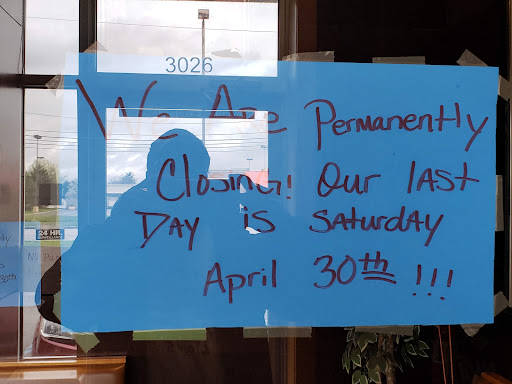 3026
We Are Permanently
Closing! Our last
Day is Saturday
April 30th !!!
24 HR.